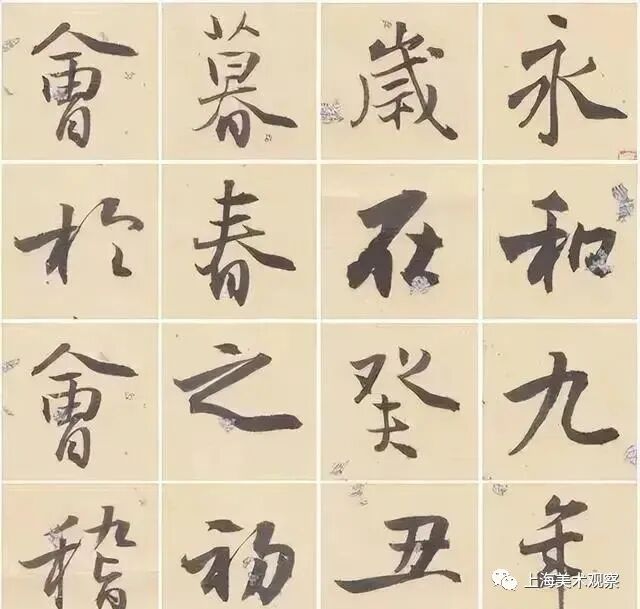 永和九年
歲在癸丑
暮春之初
會於會稽
上海美术观察